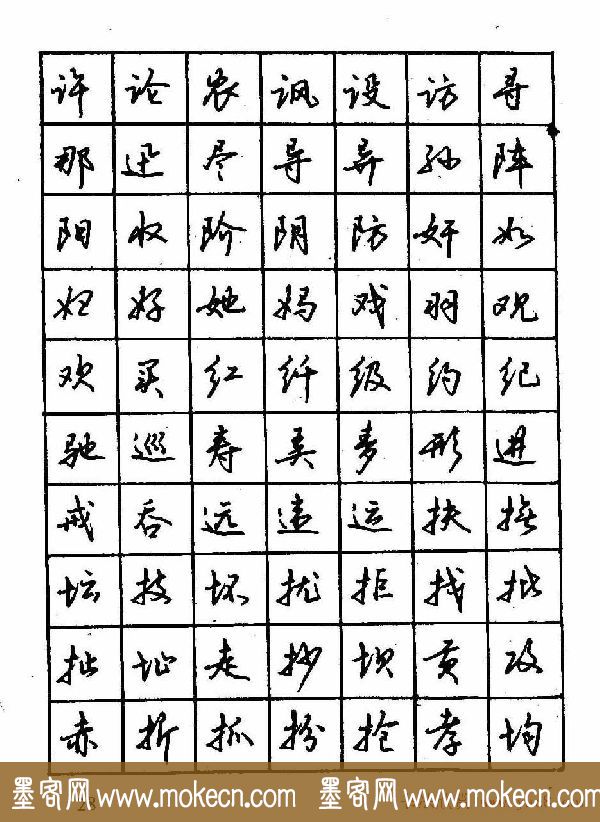 许 论 农 讽 设 访 寻
那 迅 尽 导 异 孙 阵
阳 收 阶 阴 防 奸 如
妇 好 她 妈 戏 羽 观
欢 买 红 纤 级 约 纪
驰 巡 寿 弄 麦 形 进
戒 吞 远 违 运 扶 抚
坛 技 坏 扰 拒 找 批
扯 址 走 抄 坝 贡 攻
赤 折 抓 扮 抢 孝 均
墨客网www.mokecn.com 墨客网www.mokecn.com
23